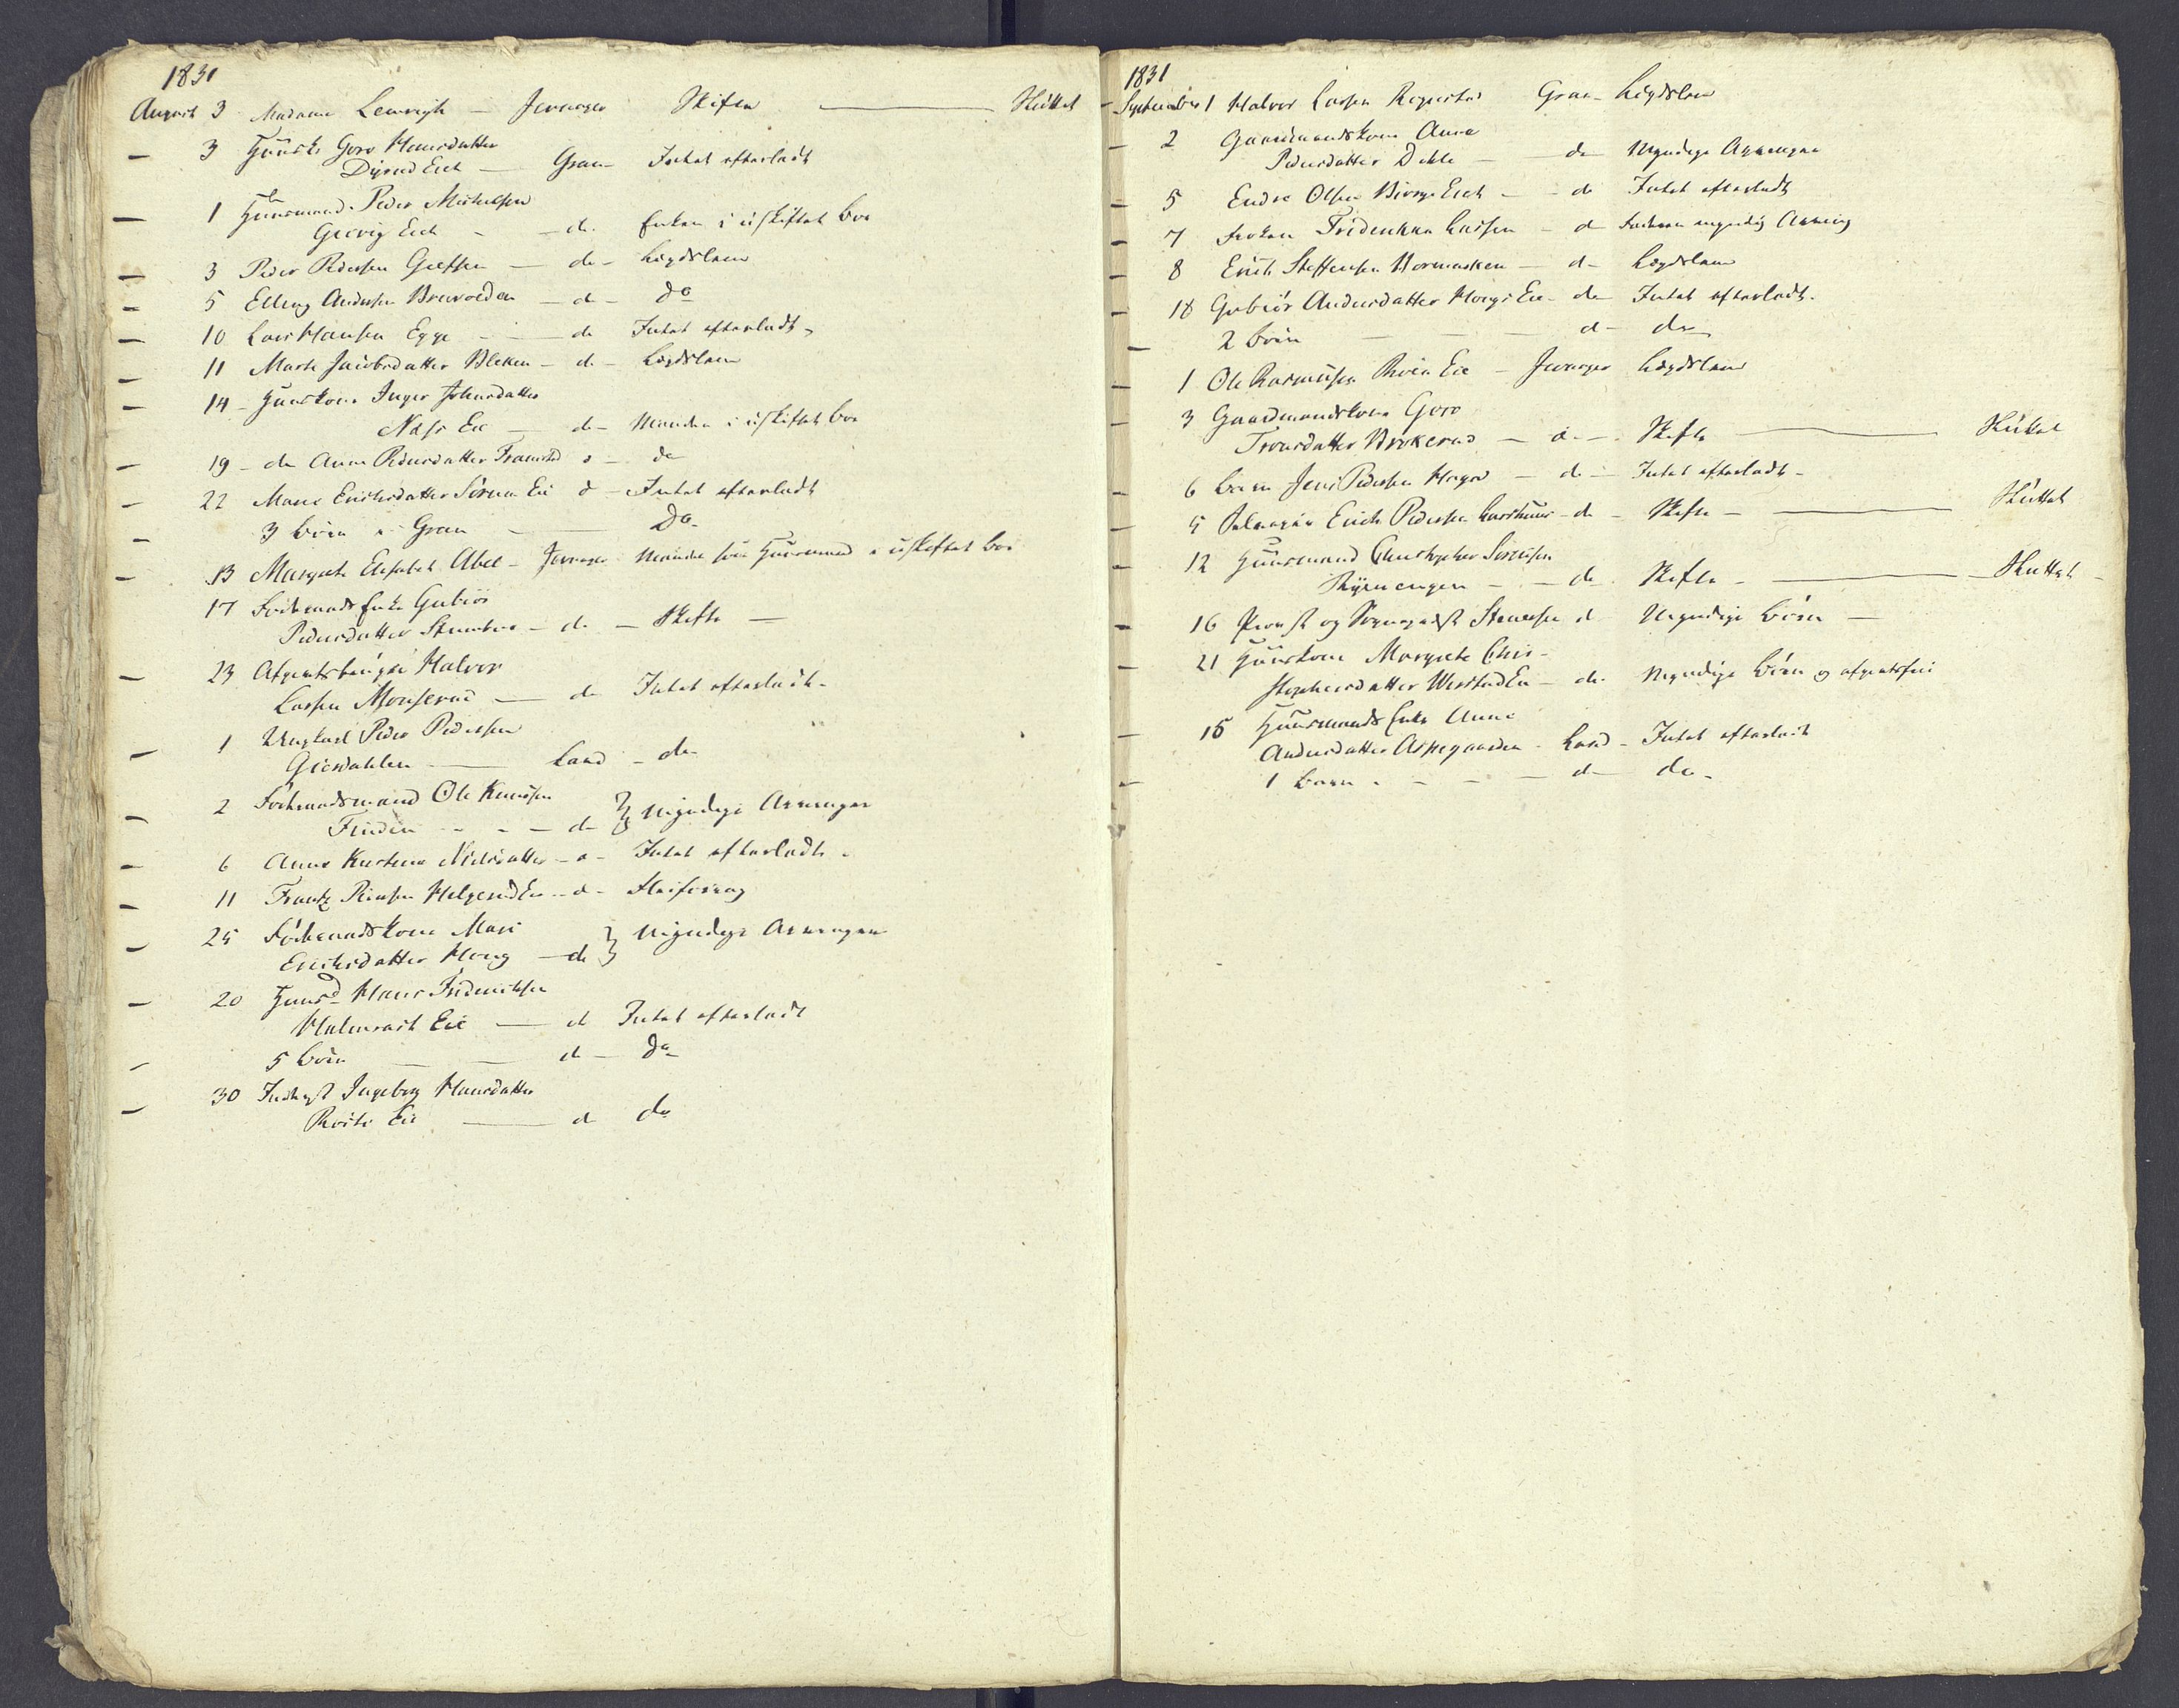 1831
August 3 Madame Lemvigh — Jevnager Skifte — Sluttet
— 3 Huusk. Goro Hansdatter
Dyrud Eiet — Gran Intet efterladt
— 1 Huusmand Peder Michelsen
Gievig Eiet - - do. Enken i uskiftet boe
— 3 Peder Pedersen Gieffsen — do - Lægdslem
— 5 Elling Andersen Bruvolden — d - do
— 10 Lars Hansen Egge - - do Intet efterladt
— 11 Marte Jacobsdatter Bleken - d - Lægdslem
— 14 - Huuskone Inger Johnsdatter
Næss Eie — do - Manden i uskiftet boe
— 19 - do Anne Pedersdatter Framstad d — do
— 22 Marie Erichsdatter Sørum Eie d - Intet efterladt
— 3 Børn i Gran — Do.
— 13 Margrete Elisabet Abel - Jevnager Manden som Huusmand i uskiftet boe
17 Sørkmands Enke Gubiør
Pedersdatter - do — Skifte —
— 23 Afgeatsbruger Halvor
Larsen Monserud — do Intet efterladt -
— 1 Ungkarl Peder Pedersen
Giesdahlen — Land - do
— 2 Ole Knudsen
Finden - - — do } Myndige Arvinger
— 6 Anne Kirstine Nielsdatter - d - Intet efterladt -
— 11 Frantz Helgerud Eie - d -
— 25 Mari
Erichsdatter Houg — do } Myndige Arvinger
— 20 Huusmd Hans Friderichsen
Halmrast Eie — do Intet efterladt
— 5 Børn — — do — do
— 30 Inderst Ingeborg Hansdatter
Røste Eie — d do
1831
September 1 Halvor Larsen Rognstad Gran - Lægdslem
— 2 Gaardmandskone Anne
Pedersdatter Dehle — do Myndige Arvinger
— 5 Endre Olsen Bierge Eiet - - do Intet efterladt
— 7 Frøken Friderikke Lassen - d myndig Arving
— 8 Erich Steffensen Hormarken — d - Lægdslem
— 18 Gubiør Andersdatter Hougs Eie - do Intet efterladt.
— 2 Børn — — d - do
— 1 Ole Rasmusen Røen Eie - Jevnager Lægdslem
— 3 Gaardmandskone Goro
Trondsdatter Brokerud — d - Skifte — Sluttet
— 6 Barn Jens Pedersen Hager — do - Intet efterladt -
— 5 Erich Pedersen - do - Skifte - — Sluttet
— 12 Huusmand Christopher Sørensen
- — do. Skifte - — Sluttet
— 16 Provst og Sogneprest Stenersen d Myndige Børn —
— 21 Huuskone Margrete Chri-
stophersdatter Westad Eie - do. Myndige Børn og afgeatsfrie
— 15 Huusmands Enke Anne
Andersdatter Aspegaarden - Land - Intet efterladt
— 1 Barn - - - — d — do -